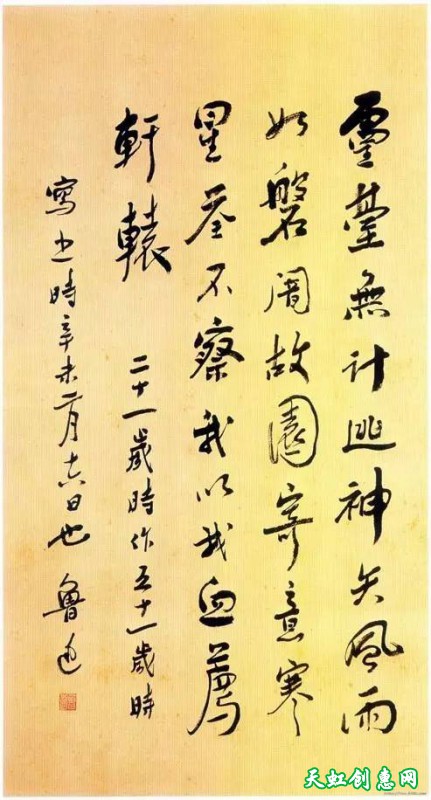 靈臺無計逃神矢風雨
如磐闇故園寄意寒
星荃不察我以我血薦
軒轅 二十一歲時作五十一歲時
寫之時辛未二月十六日也 魯迅
天虹创惠网